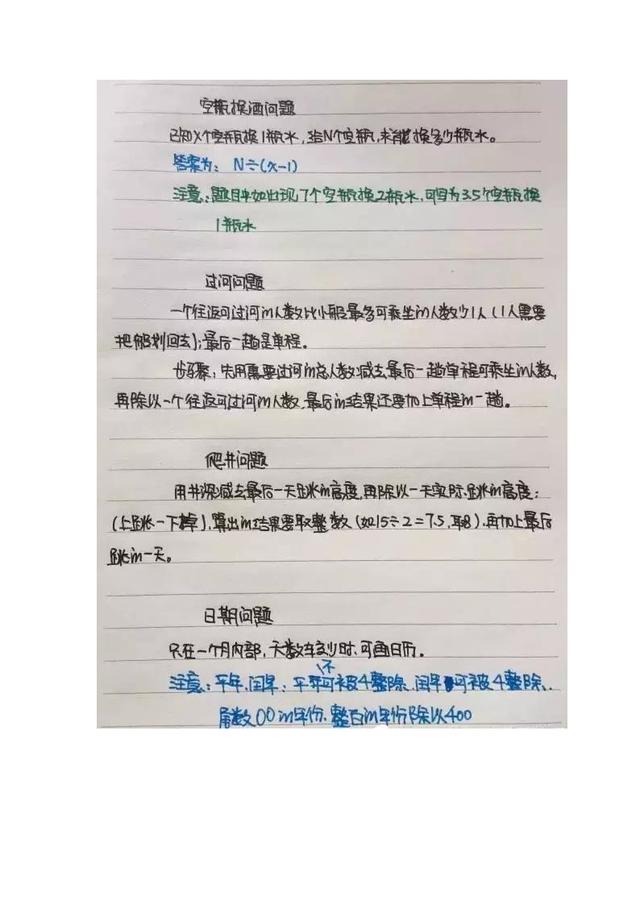 空瓶换酒问题
已知X个空瓶换1瓶水，给N个空瓶，求能换多少瓶水。
答案为：N÷(x-1)
注意：题目中如出现7个空瓶换2瓶水，可自为3.5个空瓶换
1瓶水
过河问题
一个往返可过河的人数比小船最多可乘坐的人数少1人（1人需要
把船划回去）；最后一趟是单程。
步骤，先用需要过河的总人数减去最后一趟单程可乘坐的人数，
再除以一个往返可过河的人数，最后的结果还要加上单程的一趟。
爬井问题
用井深减去最后一天跳的高度，再除以一天实际跳的高度；
（上跳－下掉），算出的结果要取整数（如15÷2=7.5，取8），再加上最后
跳的一天。
日期问题
只在一个月内部，天数较少时，可画日历。
注意：平年，闰年；平年不可被4整除，闰年可被4整除、
尾数00的年份，整百的年份除以400